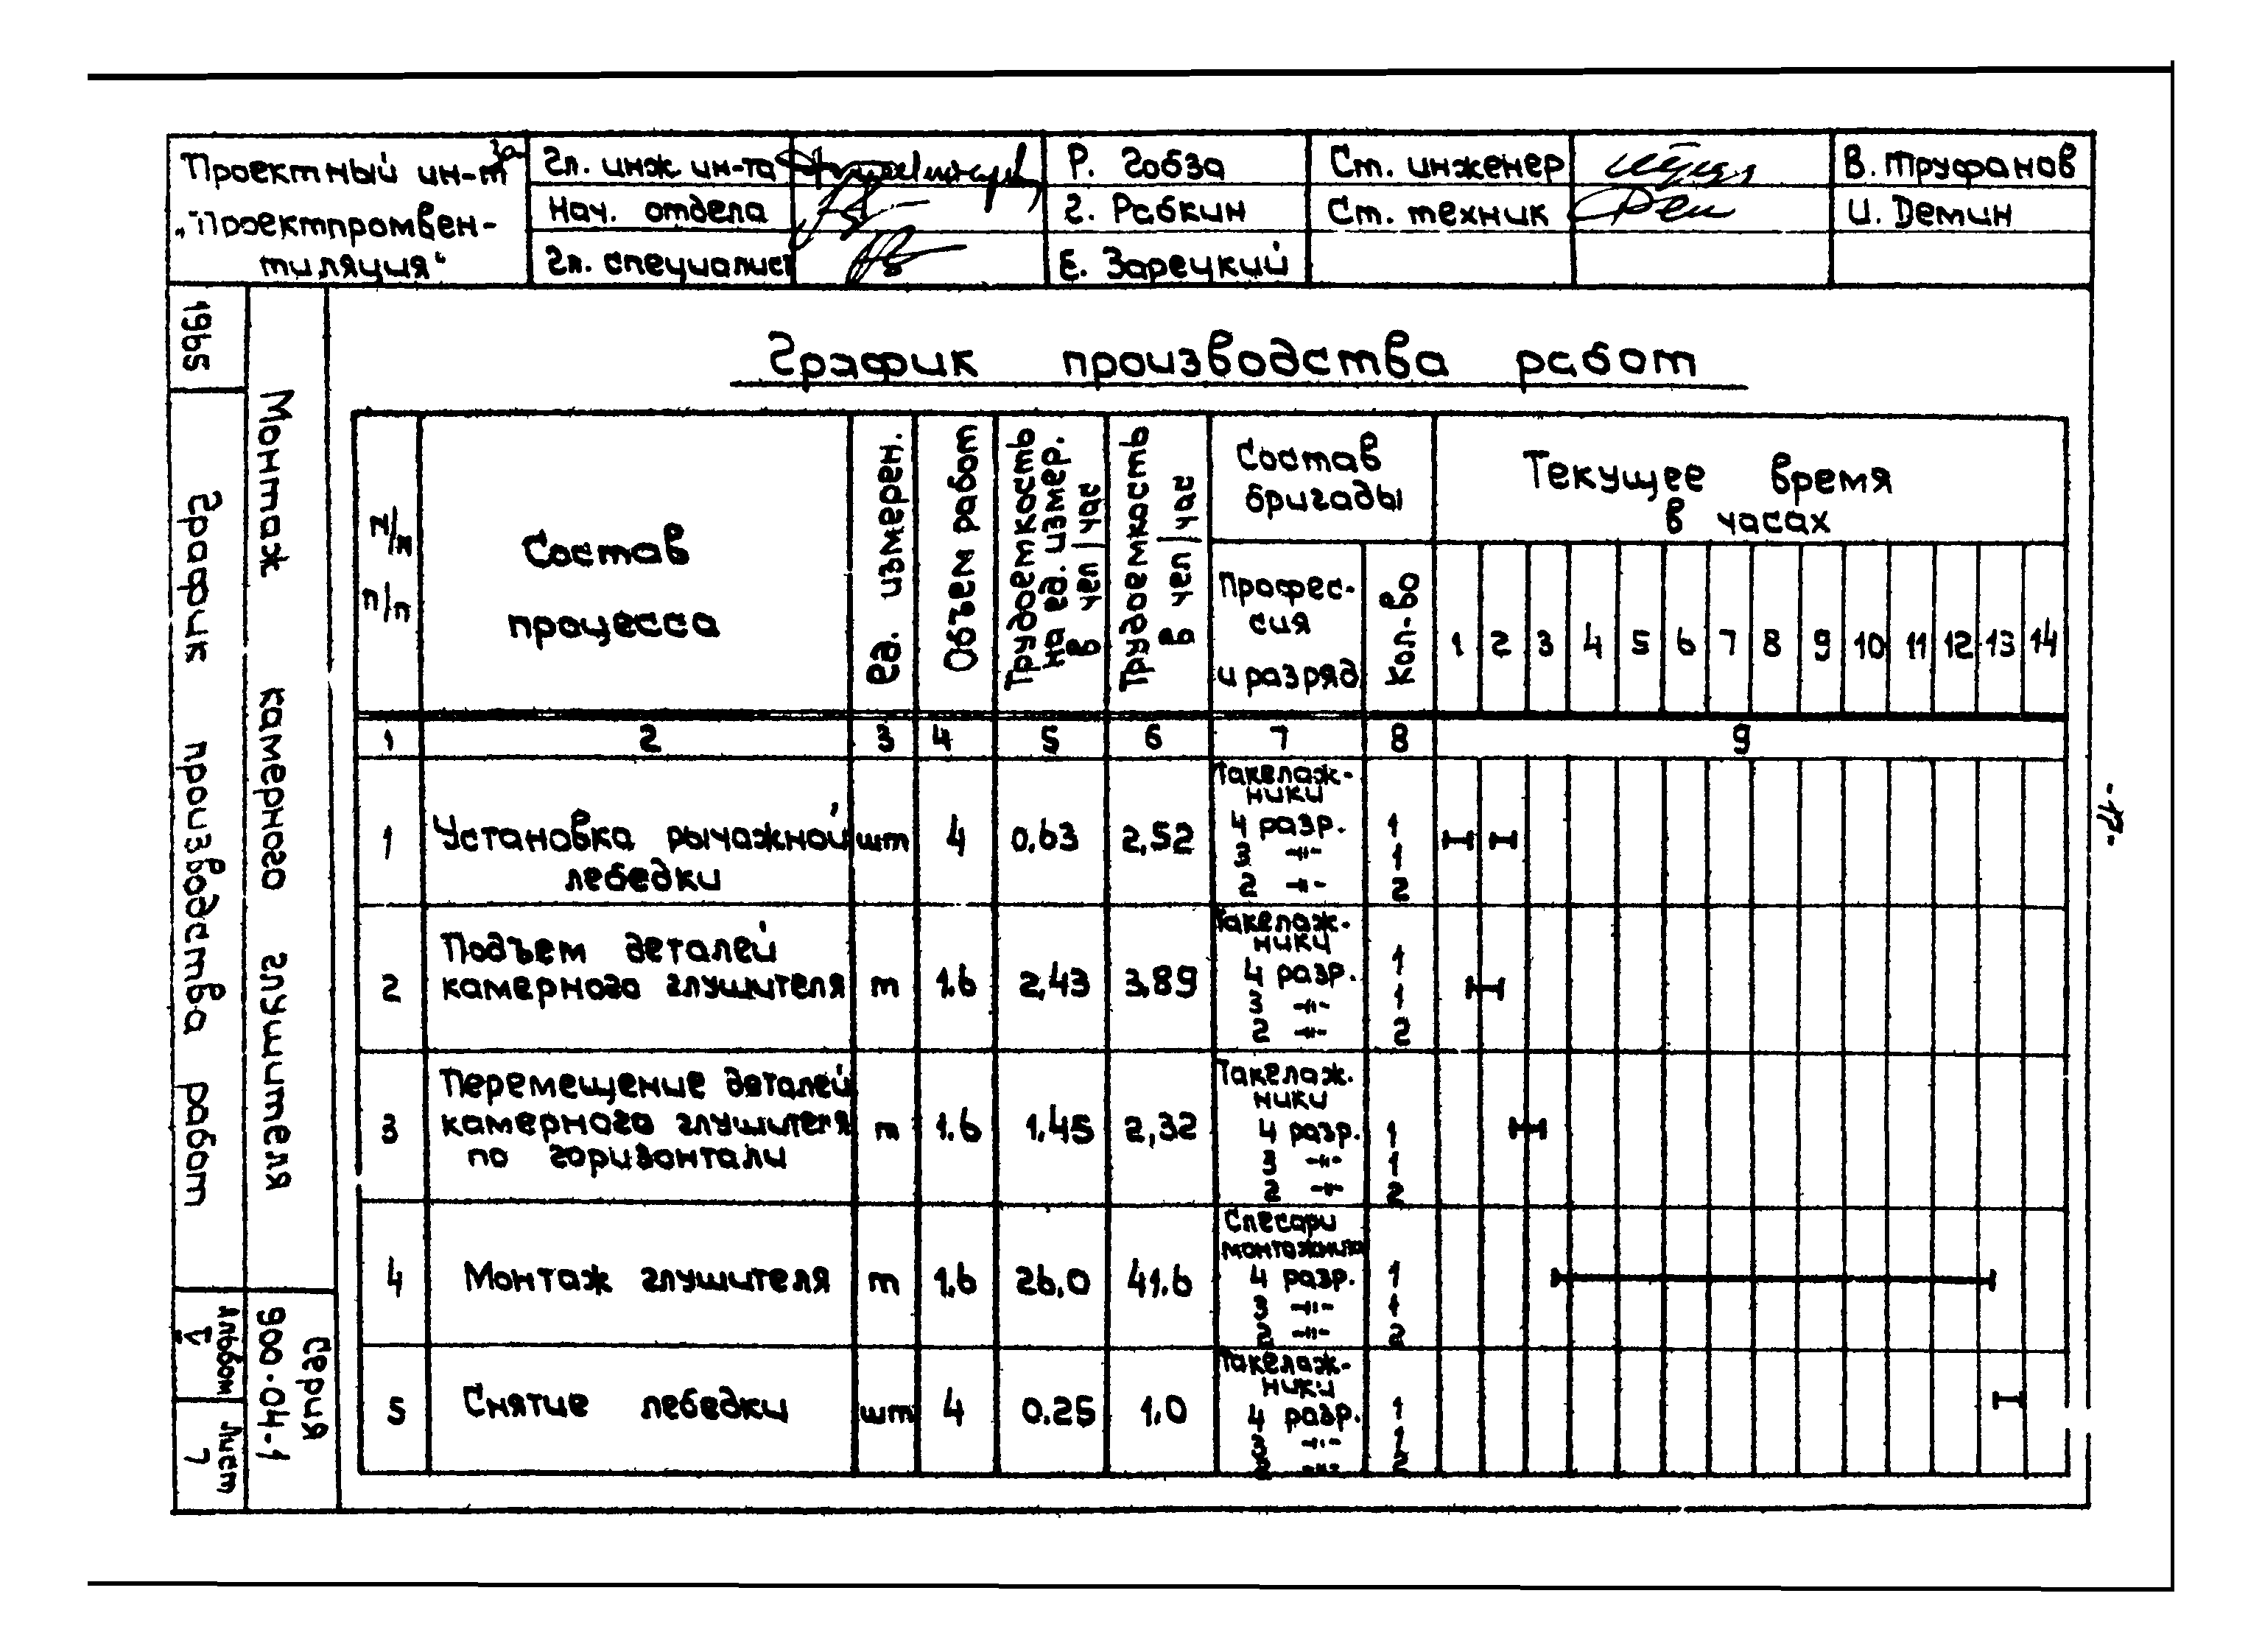 Проектный ин-т
„Проектпромвен-
тиляция“
Гл. инж ин-та
Р. Гобза
Ст. инженер
В. Труфанов
Нач. отдела
Г. Рабкин
Ст. техник
И. Демин
Гл. специалист
Е. Зарецкий
1965
График производства работ
Альбом
V
Лист
7
Монтаж камерного глушителя
Серия
900-04-1
График производства работ
N/N
п/п
Состав
процесса
Ед. измерен.
Объем работ
Трудоемкость
на ед. измер.
в чел/час
Трудоемкость
в чел/час
Состав
бригады
Профес-
сия
и разряд
Кол-во
Текущее время
в часах
1 2 3 4 5 6 7 8 9 10 11 12 13 14
1 2 3 4 5 6 7 8 9
1 Установка рычажной
лебедки
шт 4 0,63 2,52
Такелаж-
ники
4 разр. 1
3 -"- 1
2 -"- 2
2 Подъем деталей
камерного глушителя
т 1.6 2,43 3,89
Такелаж-
ники
4 разр. 1
3 -"- 1
2 -"- 2
3 Перемещение деталей
камерного глушителя
по горизонтали
т 1.6 1,45 2,32
Такелаж.
ники
4 разр. 1
3 -"- 1
2 -"- 2
4 Монтаж глушителя т 1,6 26,0 41.6
Слесари
монтажники
4 разр. 1
3 -"- 1
2 -"- 2
5 Снятие лебедки шт 4 0.25 1,0
Такелаж-
ники
4 разр. 1
3 -"- 1
2 -"- 2
-17-